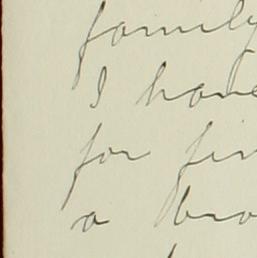 family
I have
for fin
a bro